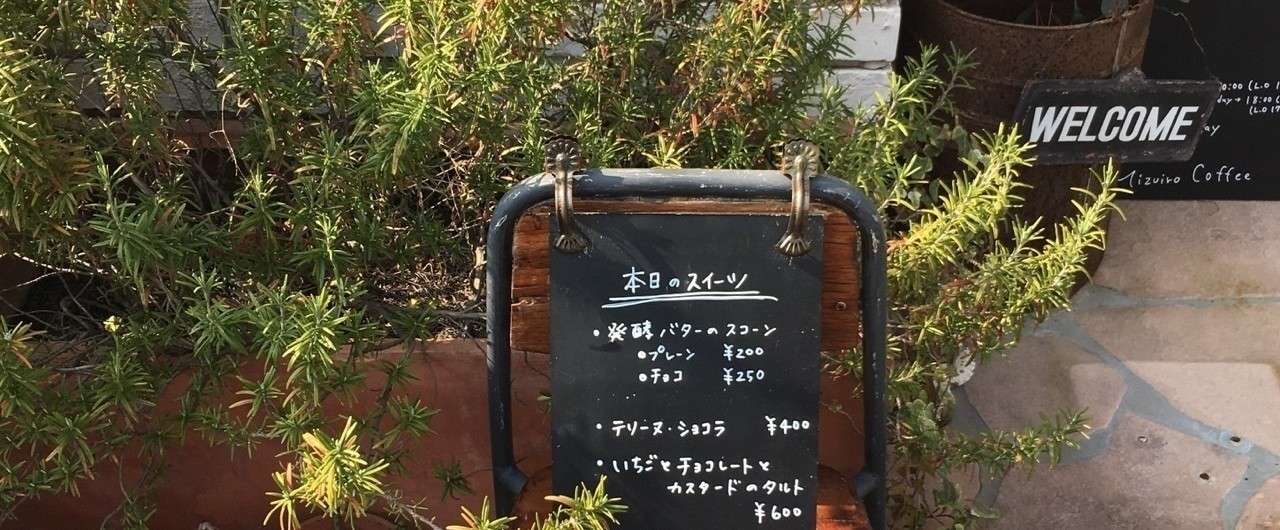 本日のスイーツ
・発酵バターのスコーン
●プレーン ¥200
●チョコ ¥250
・テリーヌ・ショコラ ¥400
・いちごとチョコレートと
カスタードのタルト
¥600
WELCOME
(L.O
18:00
(L.O 17
Mizuiro Coffee